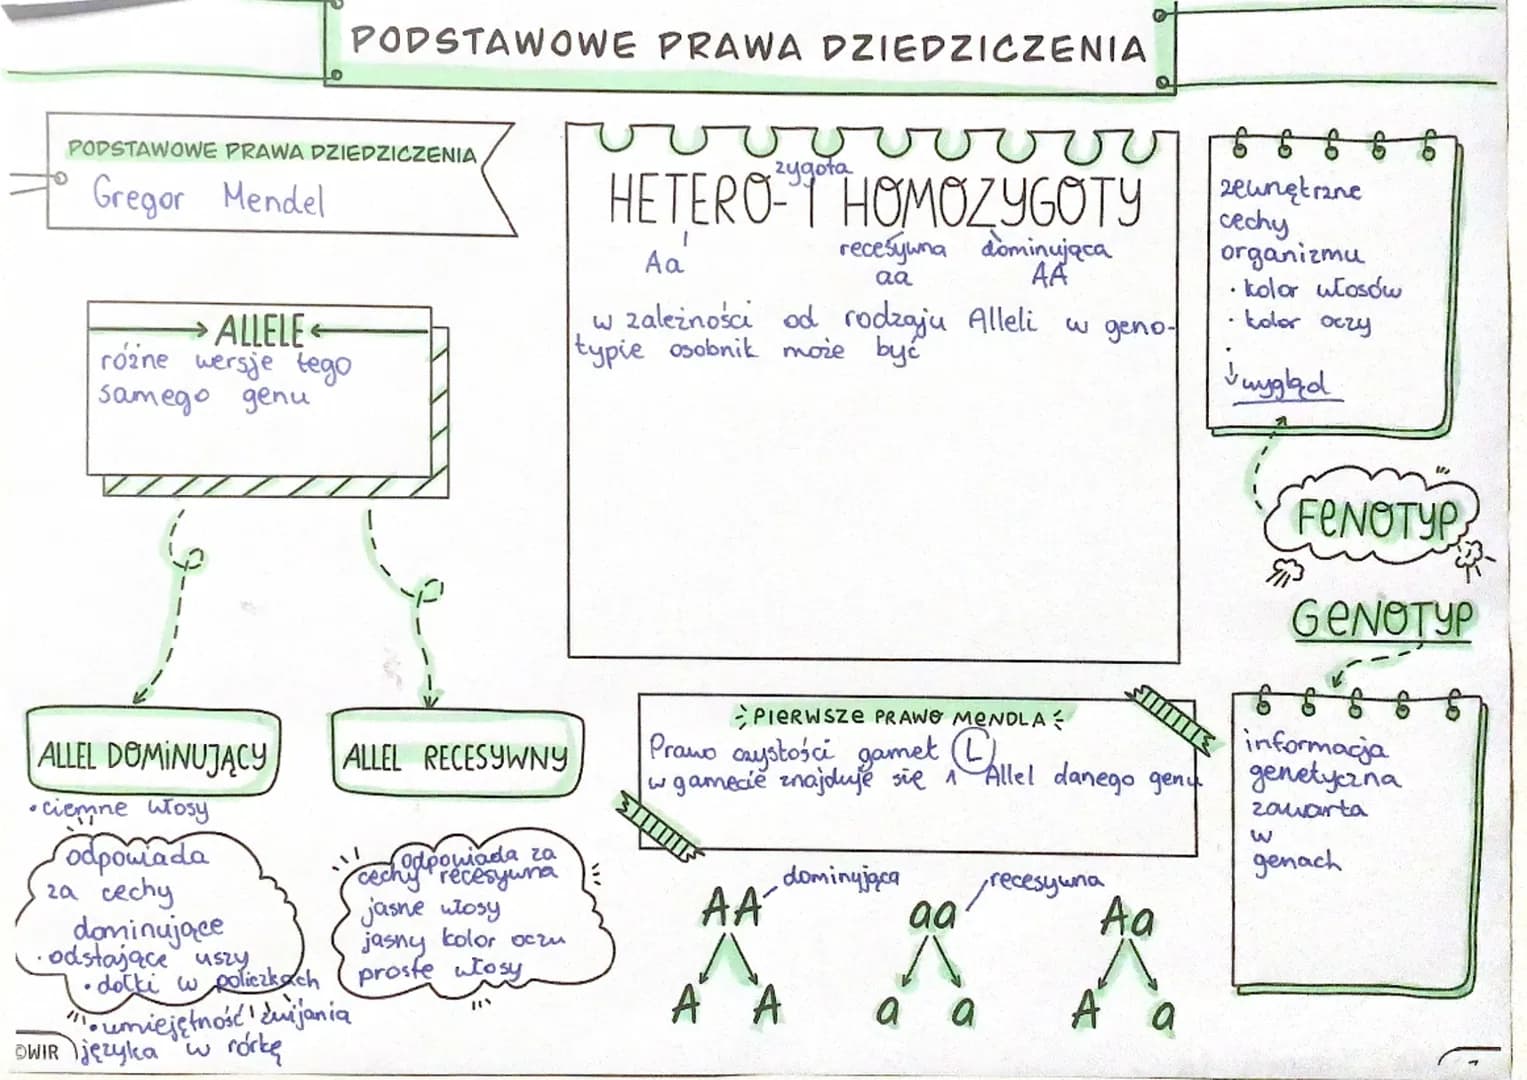 PODSTAWOWE PRAWA DZIEDZICZENIA
PODSTAWOWE PRAWA DZIEDZICZENIA
Gregor Mendel
ALLELE
różne wersje tego
samego genu
ALLEL DOMINUJĄCY
• ciemne włosy
odpowiada
za cechy
dominujące
• odstające uszy
• dołki w policzkach
• umiejętność zwijania
języka w rórkę
ALLEL RECESYWNY
odpowiada za
cechy recesywna
jasne włosy
jasny kolor oczu
proste włosy
zygota
HETERO- I HOMOZYGOTY
recesywna dominująca
Aa aa AA
w zależności od rodzaju Alleli w geno-
typie osobnik może być
PIERWSZE PRAWO MENDLA
Prawo czystości gamet L
w gamecie znajduje się 1 Allel danego genu
AA dominująca
aa recesywna
Aa
A A a a A a
zewnętrzne
cechy
organizmu
• kolor włosów
• kolor oczy
•
↓ wygląd
FENOTYP
GENOTYP
informacja
genetyczna
zawarta
w
genach
©WIR